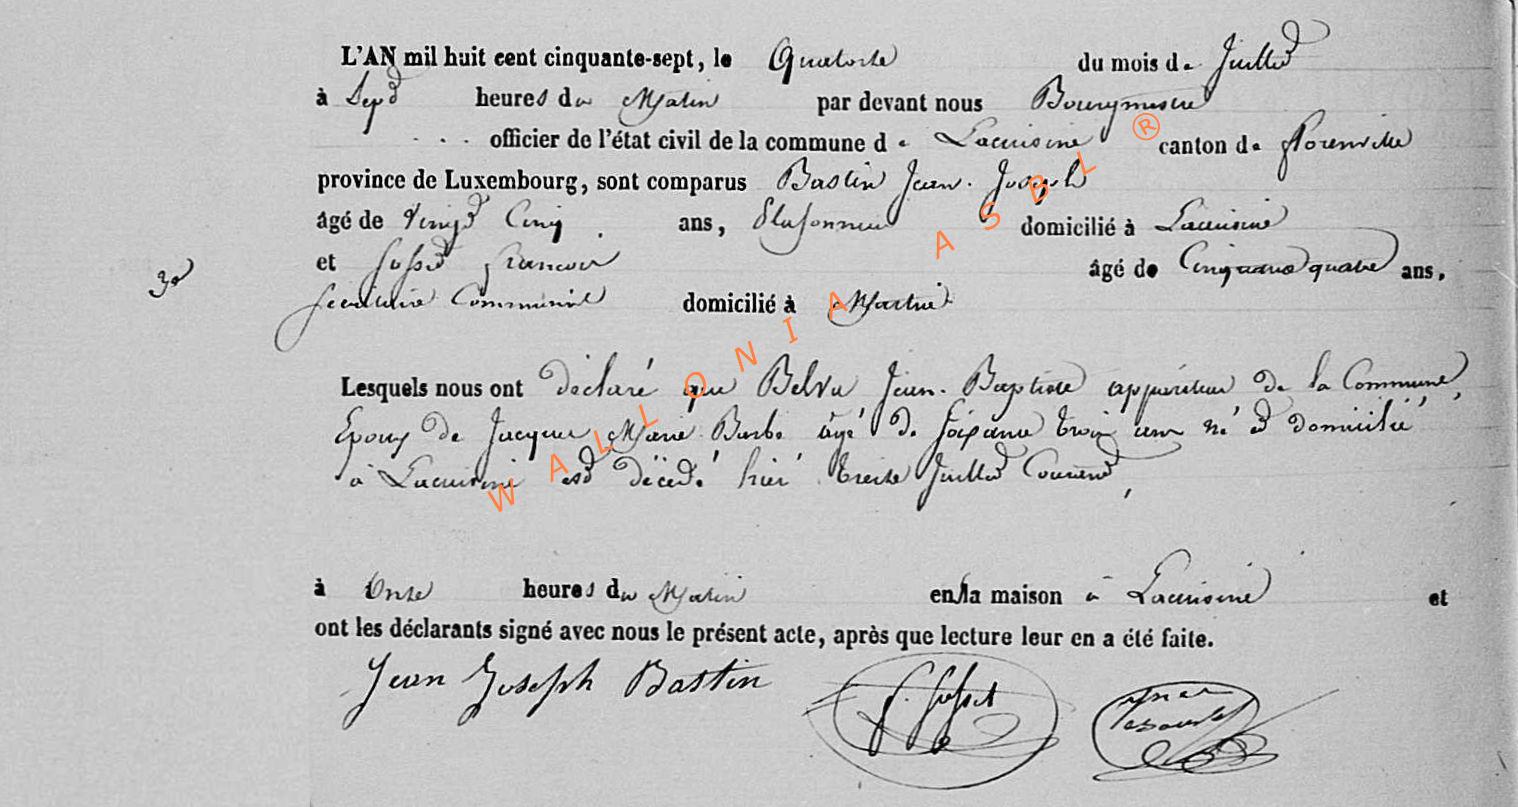 L'AN mil huit cent cinquante-sept, le Quatorze du mois de Juillet
à Sept heures du Matin par devant nous Bourgmestre
officier de l'état civil de la commune de Lacuisine canton de florenville
province de Luxembourg, sont comparus Bastin Jean Joseph
âgé de vingt Cinq ans, Plafonneur domicilié à Lacuisine
et francois âgé de Cinquante quatre ans,
Secrétaire Communal domicilié à Martué
Lesquels nous ont déclaré que Belva Jean Baptiste appariteur de la Commune,
Epoux de Jacques Marie Barbe âgé de soixante trois ans né et domicilié
à Lacuisine est décédé hier treize Juillet Courant,
à Onze heures du Matin en la maison à Lacuisine et
ont les déclarants signé avec nous le présent acte, après que lecture leur en a été faite.
Jean Joseph Bastin
WALLONIA ASBL ®